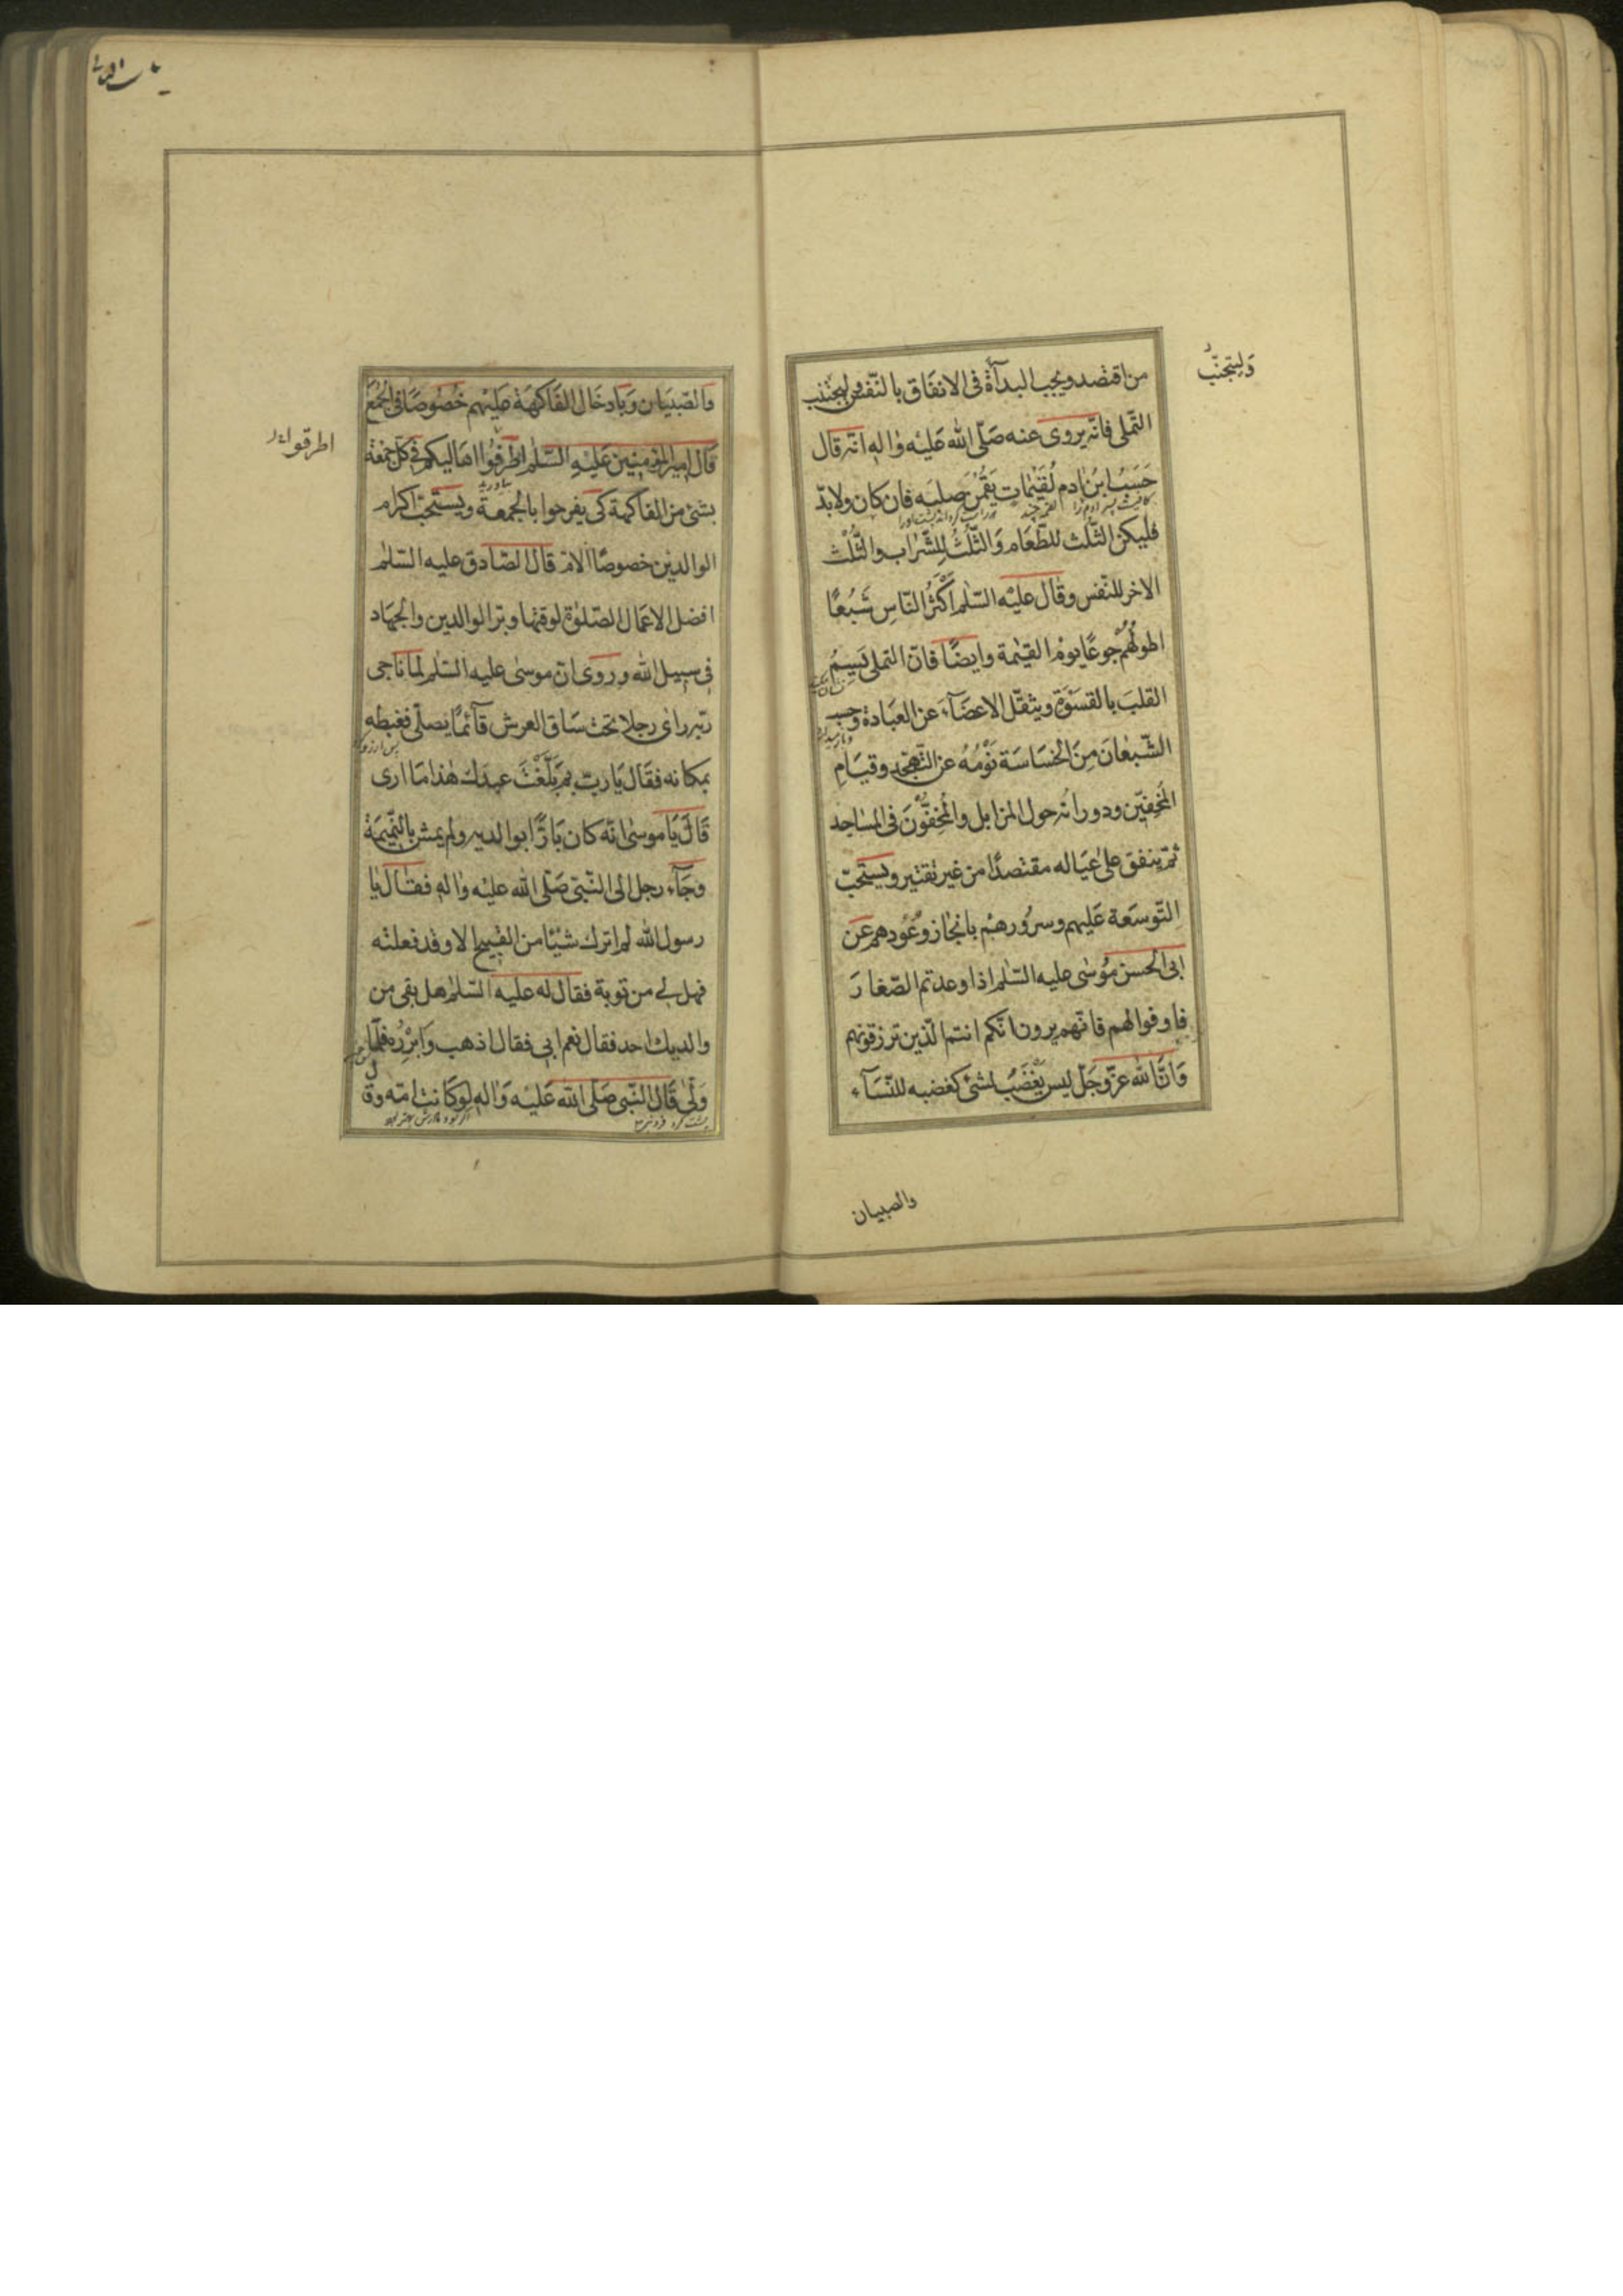 من اقتصد ويجب البدأة فى الانفاق بالنّفس وليجتنب
وَليتجنّب
التّملى فانّه يروى عنه صَلّى الله عَليْه واٰله انّه قال
حَسَبُ ابنُ اٰدم لُقَيْمات يَقمْنَ صلبَه فان كان ولابدّ
فليكن الثّلث للطّعَام وَالثّلُثُ للِشّرٰاب والثّلُثْ
الاخر للنّفس وقال عليْه السّلٰم اَكْثَرُ النّاسِ شَبْعًا
اطولُهُمْ جوعًا يومْ القيٰمة وايضًا فانّ التملى يَسِمُ
القلبَ بالقسْوَة ويثقّل الاعضَآءَ عن العبَادة وحسب
الشّبْعَانَ مِنَ الخسَاسَة نَوْمُهُ عن التّهجّد وقيَامِ
المُخِفيّن ودورانُه حول المزابل والمُخِفّوُنَ فى المسٰاجد
ثمّ ينفق على عيَاله مقتصدًا من غير تقتير ويستَحبّ
التّوسَعة عَليهم وسرُورهمْ بانجٰاز وُعُودهم عن
ابى الحسن مُوسٰى عليه السّلٰم اذا وعدتم الصّغارَ
فاوفوا لهم فانّهم يرون انّكم انتم الّذين ترزقونهم
وَانّ الله عزّ وجَلّ ليس يَغْضَبُ لشئ كغضبه للنّسَآء
والصبيان
وَالصّبيَان وَبادخَال الفَاكهَة عليْهم خُصُوصًا فى الجُمَع
قال امير المؤمنين عَليْهِ السّلٰم اطرفُوا اهَاليكم فى كلّ جمْعَة
اطرقوا
بشئ من الفاكهة كى يفرحوا بالجمعة ويستَحبّ اكرام
الوالدين خصوصًا الامّ قال الصّادق عليه السّلٰم
افضل الاعمَال الصّلوٰة لوقتها وبرّ الوالدين والجهَاد
فى سبيل الله وروى انّ موسٰى عليه السّلٰم لما ناجى
ربّه راى رجلا تحت سَاق العرش قآئمًا يصلّى فغبطه
بمكانه فقَال يَا ربّ بِمَ بَلّغْتَ عبدَك هٰذا مَا ارى
قَالَ يَا موسٰى انّه كان بَارًّا بوالديه ولم يمش بالنّميمَة
وجَآء رجل الى النّبىّ صَلّى الله عليْه واٰله فقَال يٰا
رسول الله لم اترك شيْئًا من القبيح الا وقد فعلته
فهل لى من توبة فقال له عليه السّلٰم هل بقى من
والديك احد فقال نعم ابى فقال اذهب وَابْرِرُه فلمّا
وَلّى قَال النّبى صَلّى الله عَليْه وَاٰله لو كَانت امّه وقال